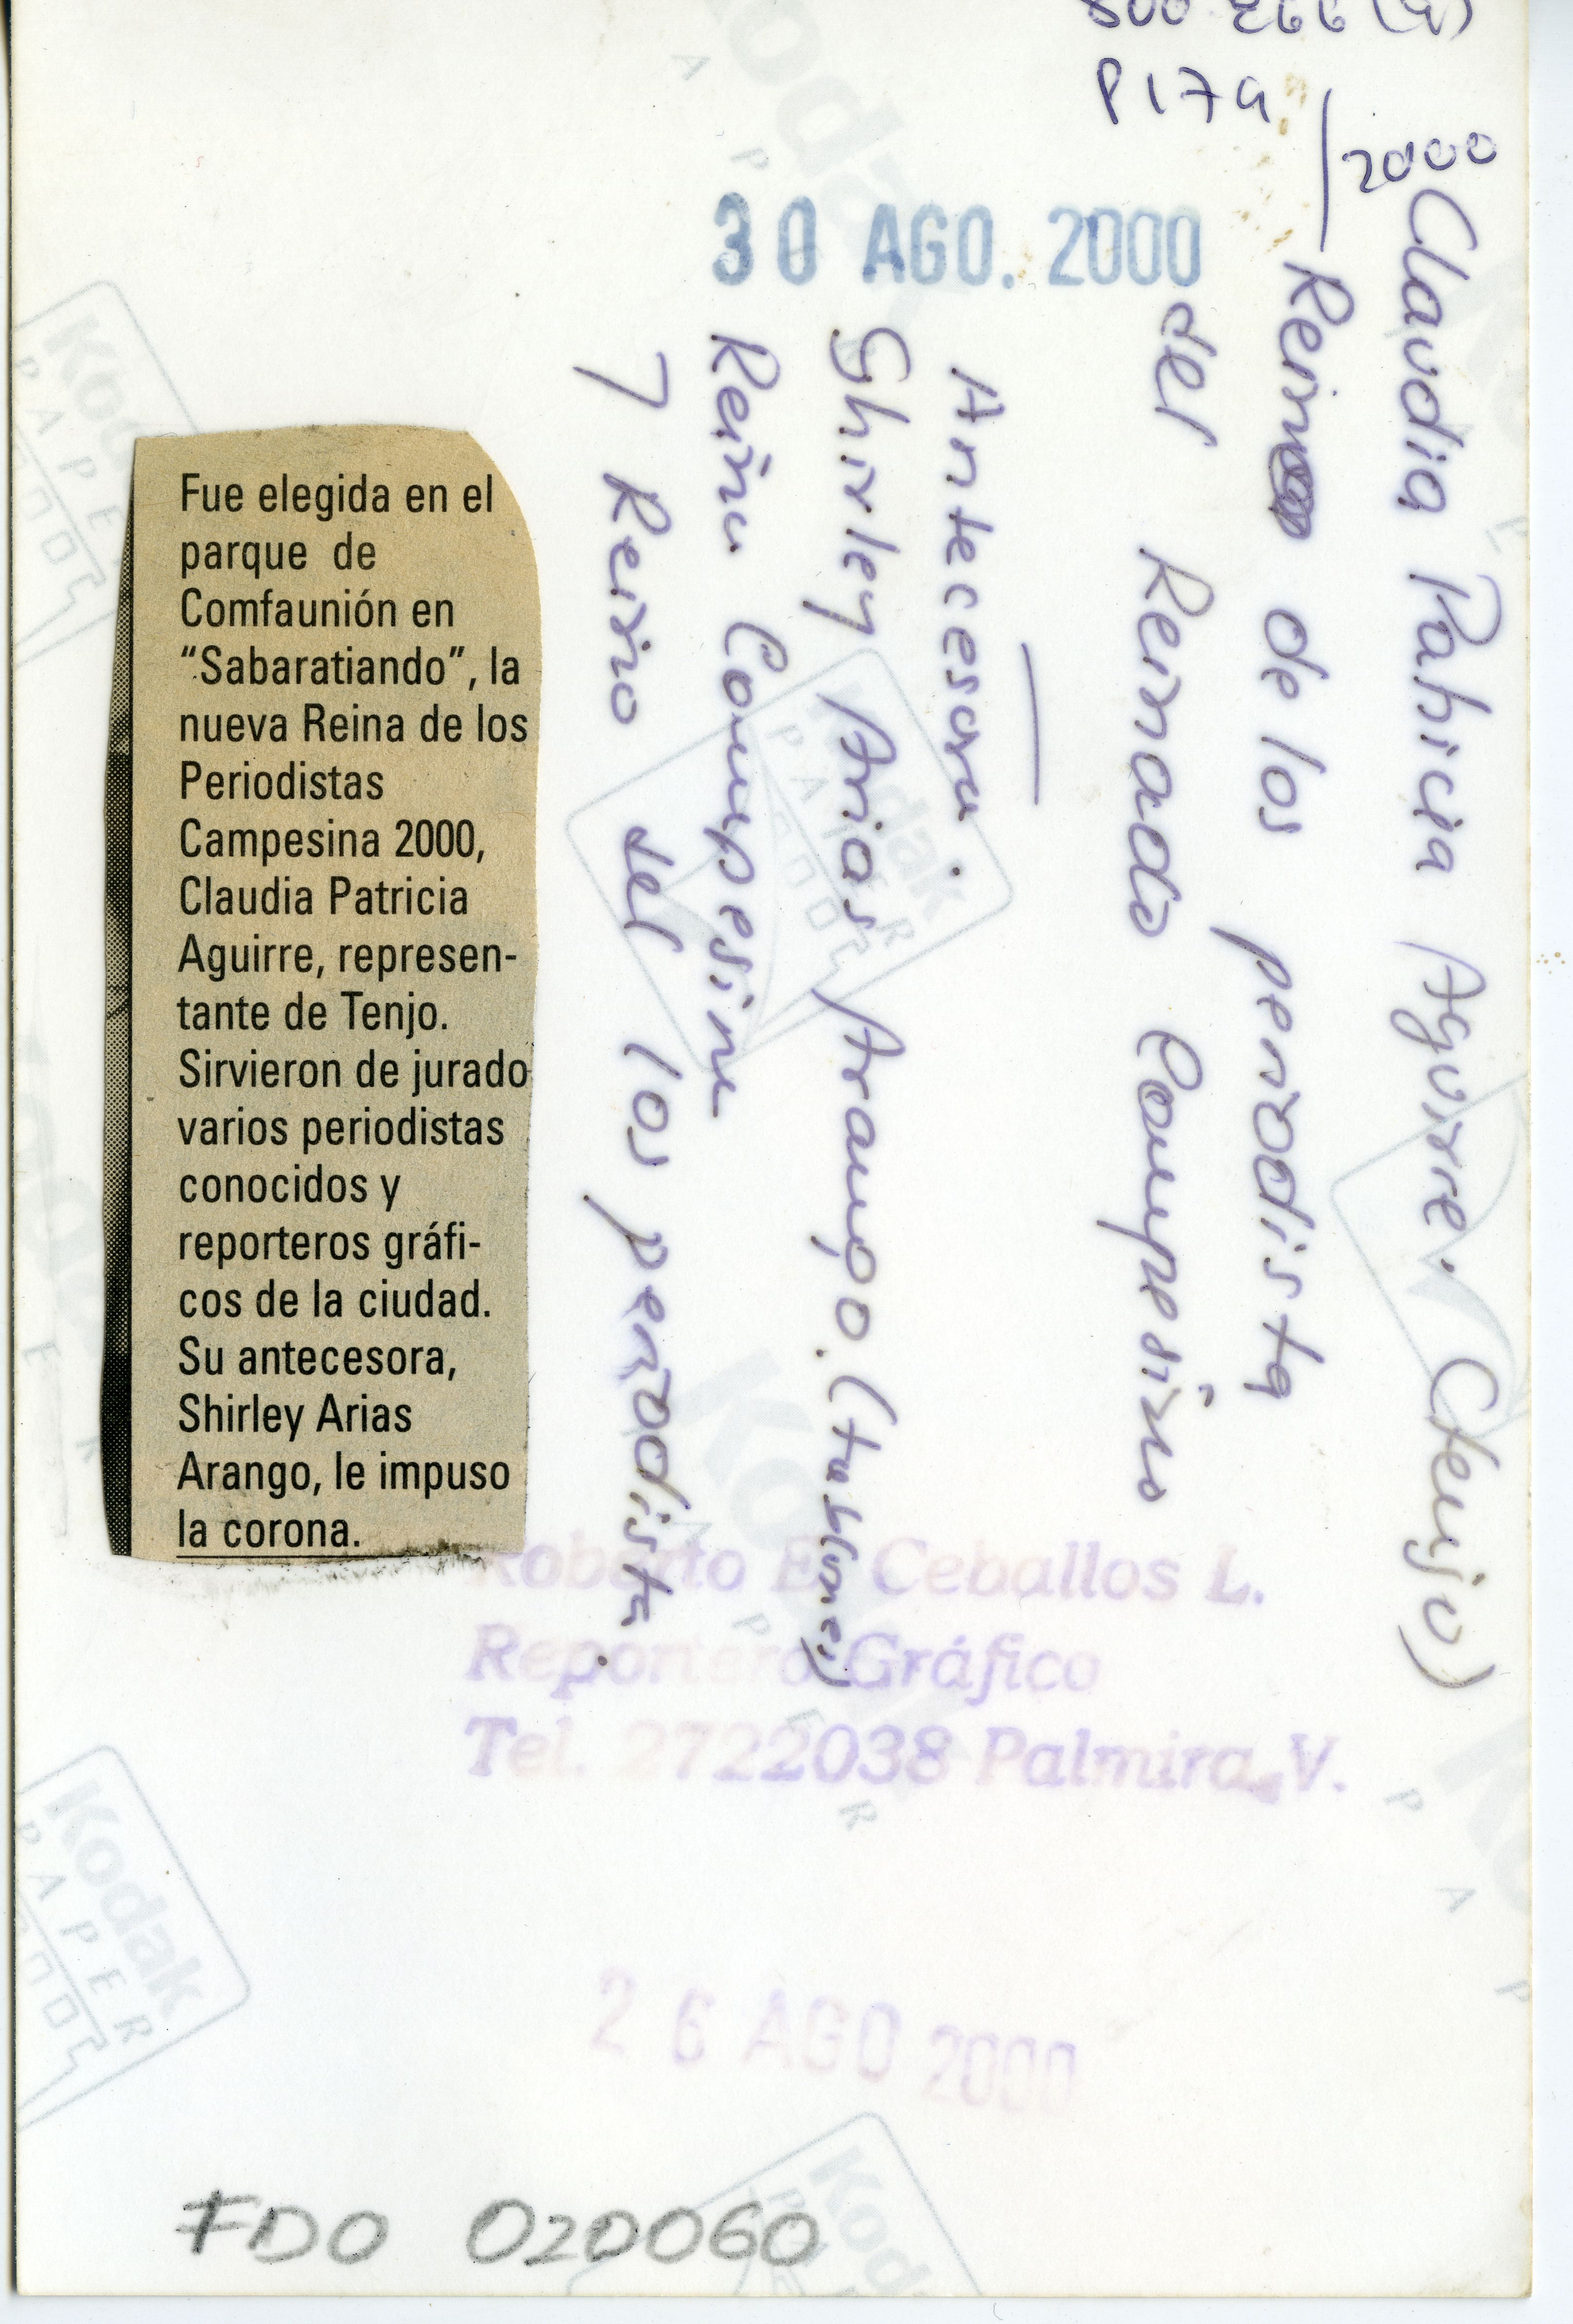 P17a
2000
30 AGO. 2000
Claudia Patricia Aguirre. (Tenjo)
Reina de los periodista
del Reinado Campesino
Antecesora.
Shirley Arias Arango.
Reina Campesina
y Reina del los periodista.
Fue elegida en el
parque de
Comfaunión en
“Sabaratiando”, la
nueva Reina de los
Periodistas
Campesina 2000,
Claudia Patricia
Aguirre, represen-
tante de Tenjo.
Sirvieron de jurado
varios periodistas
conocidos y
reporteros gráfi-
cos de la ciudad.
Su antecesora,
Shirley Arias
Arango, le impuso
la corona.
Roberto E. Ceballos L.
Reportero Gráfico
Tel. 2722038 Palmira V.
26 AGO 2000
FDO 020060
Kodak
PAPER